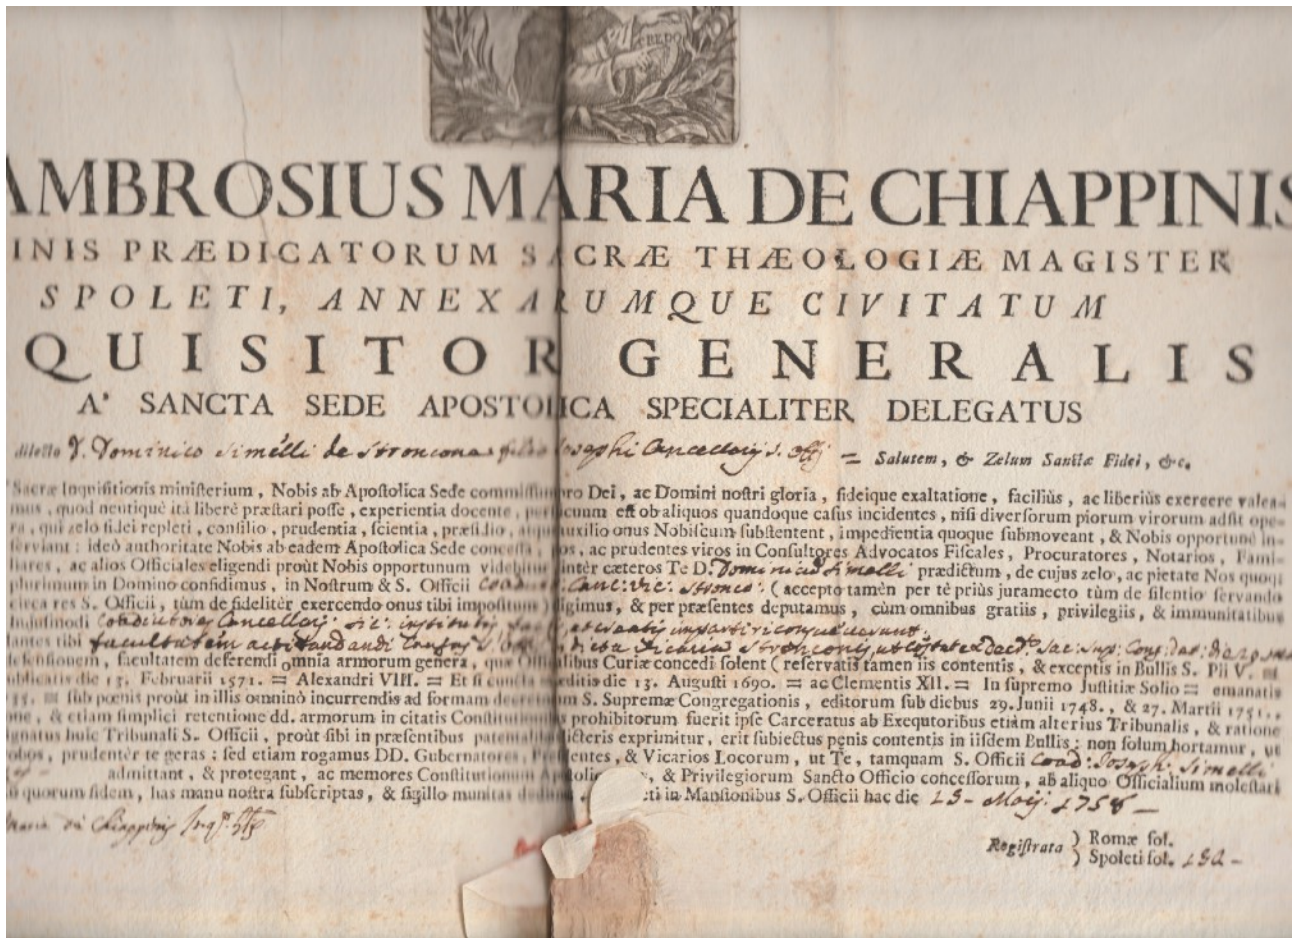 CREDO
AMBROSIUS MARIA DE CHIAPPINIS
INIS PRÆDICATORUM SACRÆ THÆOLOGIÆ MAGISTER
SPOLETI, ANNEXARUMQUE CIVITATUM
QUISITOR GENERALIS
A' SANCTA SEDE APOSTOLICA SPECIALITER DELEGATUS
dilecto D. Dominico Simelli de Stroncona filio Josephi Cancellarij S. Offij = Salutem, & Zelum Sanctæ Fidei, &c.
Sacræ Inquisitionis ministerium, Nobis ab Apostolica Sede commissum pro Dei, ac Domini nostri gloria, fideique exaltatione, faciliùs, ac liberiùs exercere valea-
mus, quod neutiquè ità liberè præstari posse, experientia docente, perspicuum est ob aliquos quandoque casus incidentes, nisi diversorum piorum virorum adsit ope-
ra, qui zelo fidei repleti, consilio, prudentia, scientia, præsidio, atque auxilio onus Nobiscum substentent, impedientia quoque submoveant, & Nobis opportunè in-
serviant: ideò authoritate Nobis ab eadem Apostolica Sede concessa, pios, ac prudentes viros in Consultores Advocatos Fiscales, Procuratores, Notarios, Fami-
liares, ac alios Officiales eligendi proùt Nobis opportunum videbitur inter cæteros Te D. Dominicum Simelli prædictum, de cujus zelo, ac pietate Nos quoq;
plurimum in Domino confidimus, in Nostrum & S. Officii Coad: Canc: Vic: Stronco: (accepto tamèn per tè priùs juramecto tùm de silentio servando
circa res S. Officii, tùm de fidelitèr exercendo onus tibi impositum) eligimus, & per præsentes deputamus, cùm omnibus gratiis, privilegiis, & immunitatibus
hujusmodi Coadiutoribus Cancellarij sic: institutis
dantes tibi facultatem dicta Vicaria Stronconij, ut Sac: Sup: Cong: dat: die 29
defensionem, facultatem deferendi omnia armorum genera, quæ Officialibus Curiæ concedi solent (reservatis tamen iis contentis, & exceptis in Bullis S. Pii V. =
publicatis die 13. Februarii 1571. = Alexandri VIII. = Et si cuncta = editis die 13. Augusti 1690. = ac Clementis XII. = In supremo Justitiæ Solio = emanatis
35. = sub pœnis proùt in illis omninò incurrendis ad formam decretorum S. Supremæ Congregationis, editorum sub diebus 29. Junii 1748., & 27. Martii 1751.,
ne, & etiam simplici retentione dd. armorum in citatis Constitutionibus prohibitorum fuerit ipse Carceratus ab Exequtoribus etiàm alterius Tribunalis, & ratione
gnatus huic Tribunali S. Officii, proùt sibi in præsentibus patentalibus licteris exprimitur, erit subiectus pœnis contentis in iisdem Bullis; non solum hortamur, ut
obos, prudentèr te geras: sed etiam rogamus DD. Gubernatores, Presidentes, & Vicarios Locorum, ut Te, tamquam S. Officii Coad: Joseph: Simelli
admittant, & protegant, ac memores Constitutionum Apostolicarum, & Privilegiorum Sancto Officio concessorum, ab aliquo Officialium molestari
quorum fidem, has manu nostra subscriptas, & sigillo munitas dedimus. cti in Mansionibus S. Officii hac die 23 - Maij: 1758 -
Maria de Chiappinis Inqr.
Registrata ) Romæ fol.
) Spoleti fol.